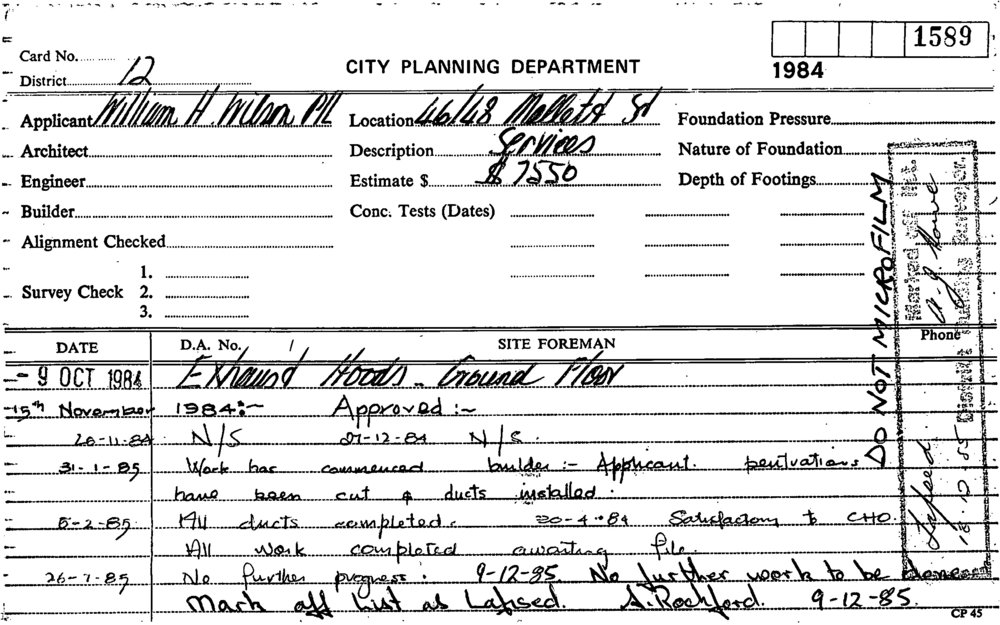 Card No.
1589
District 12
CITY PLANNING DEPARTMENT
1984
Applicant William H. Wilson P/L Location 46/48 Mallett St Foundation Pressure
Architect Description Services Nature of Foundation
Engineer Estimate $ $ 7550 Depth of Footings
Builder Conc. Tests (Dates)
Alignment Checked
1.
Survey Check 2.
3.
DO NOT MICROFILM
Marked off list.
District Building Surveyor.
Lapsed
DATE D.A. No. / SITE FOREMAN Phone
- 9 OCT 1984 Exhaust Hoods - Ground Floor
15th November 1984:- Approved :-
26-11-84 N/S 27-12-84 N/S.
31-1-85 Work has commenced builder :- Applicant. pentvations
have been cut & ducts installed.
5-2-85 All ducts completed. 20-4-84 Satisfactory to CHO.
All work completed awaiting file.
26-7-85 No further progress. 9-12-85. No further work to be done
Mark off List as Lapsed. A. Rochford. 9-12-85.
CP 45